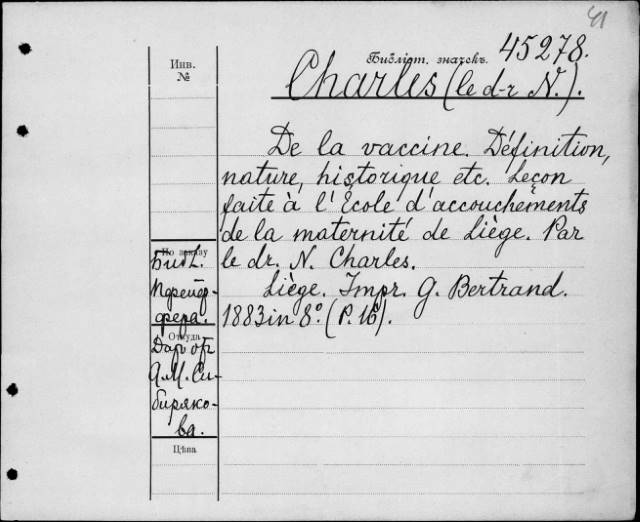 41
45278.
Библіот. значекъ.
Инв.
№
Charles (le d-r N.).
De la vaccine. Définition,
nature, historique etc. Leçon
faite à l'École d'accouchements
de la maternité de Liège. Par
le dr. N. Charles.
Liège. Impr. G. Bertrand.
1883 in 8°. (P. 16).
По каталогу
Библ.
Пфейф-
фера.
Откуда
Дар от
А.М. Си-
биряко-
ва.
Цѣна